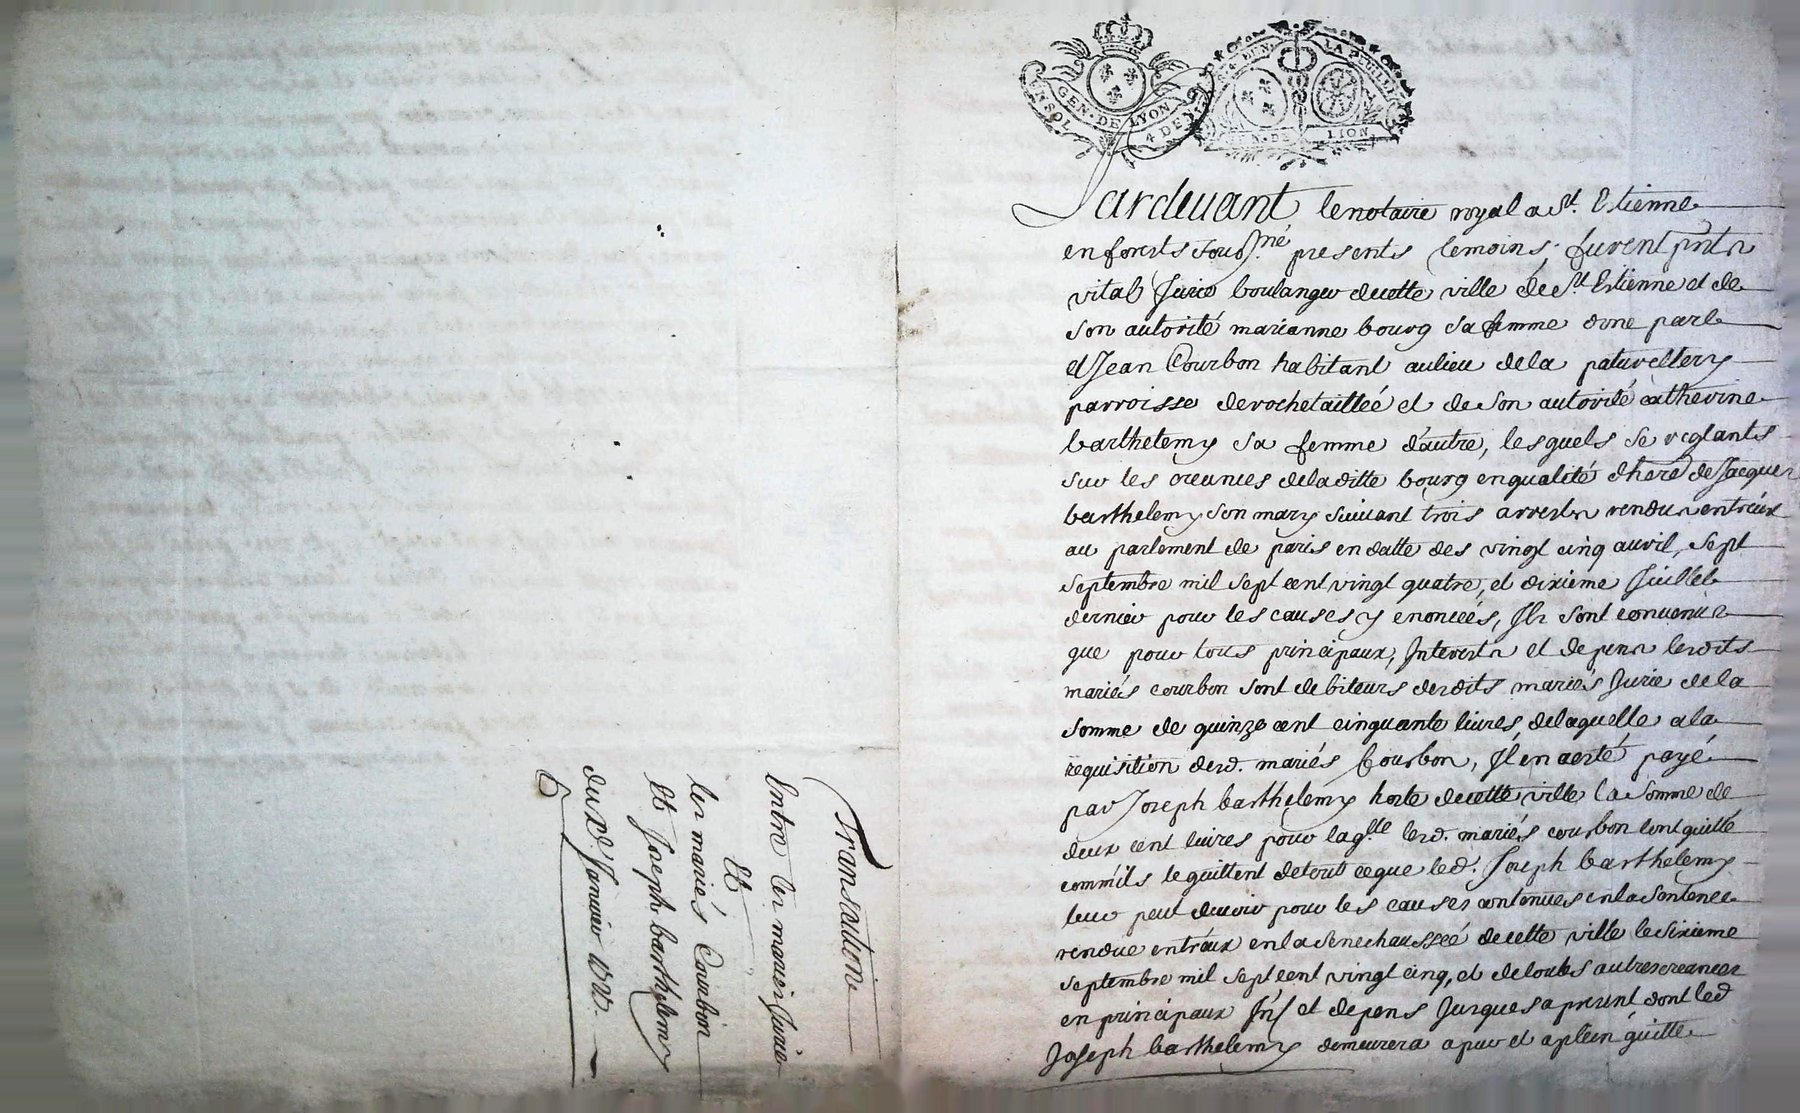 GEN·DE LYON
4 DE
LA FEUILLE
LION
Pardevant le notaire royal a St. Estienne
en forests soubs.né presents temoins, furent pnts
vital Jurie boulanger de cette ville de St Estienne et de
son autorité marianne bourg sa femme dune part
et Jean Courbon habitant au lieu de la
parroisse de rochetaillée et de son autorité catherine
barthelemy sa femme d'autre, lesquels se reglants
sur les creances de la ditte bourg en qualité d'here de Jacques
barthelemy son mary suivant trois arrests rendus entr'eux
au parlement de paris en datte des vingt cinq avril, sept
septembre mil sept cent vingt quatre, et dixieme Juillet
dernier pour les causes y enoncées, Ils sont convenus
que pour tous principaux, Interests et depens lesdits
mariés courbon sont debiteurs desdits mariés Jurie de la
somme de quinze cent cinquante livres de laquelle a la
requisition desd. mariés Courbon, Il en a esté payé
par Joseph barthelemy hoste de cette ville la somme de
deux cent livres pour laq.lle lesd. mariés courbon l'ont quitté
comm'ils le quittent de tout ce que led. Joseph barthelemy
leur peut devoir pour les causes contenues en la sentence
rendue entr'eux en la senechaussée de cette ville le sixieme
septembre mil sept cent vingt cinq, et de toutes autres creances
en principaux Int et depens Jusques a present dont led
Joseph barthelemy demeurera a pur et a plein quitte
Transaction
Entre les mariés Jurie
Et
les mariés Courbon
Et Joseph barthelemy
du Xe Janvier